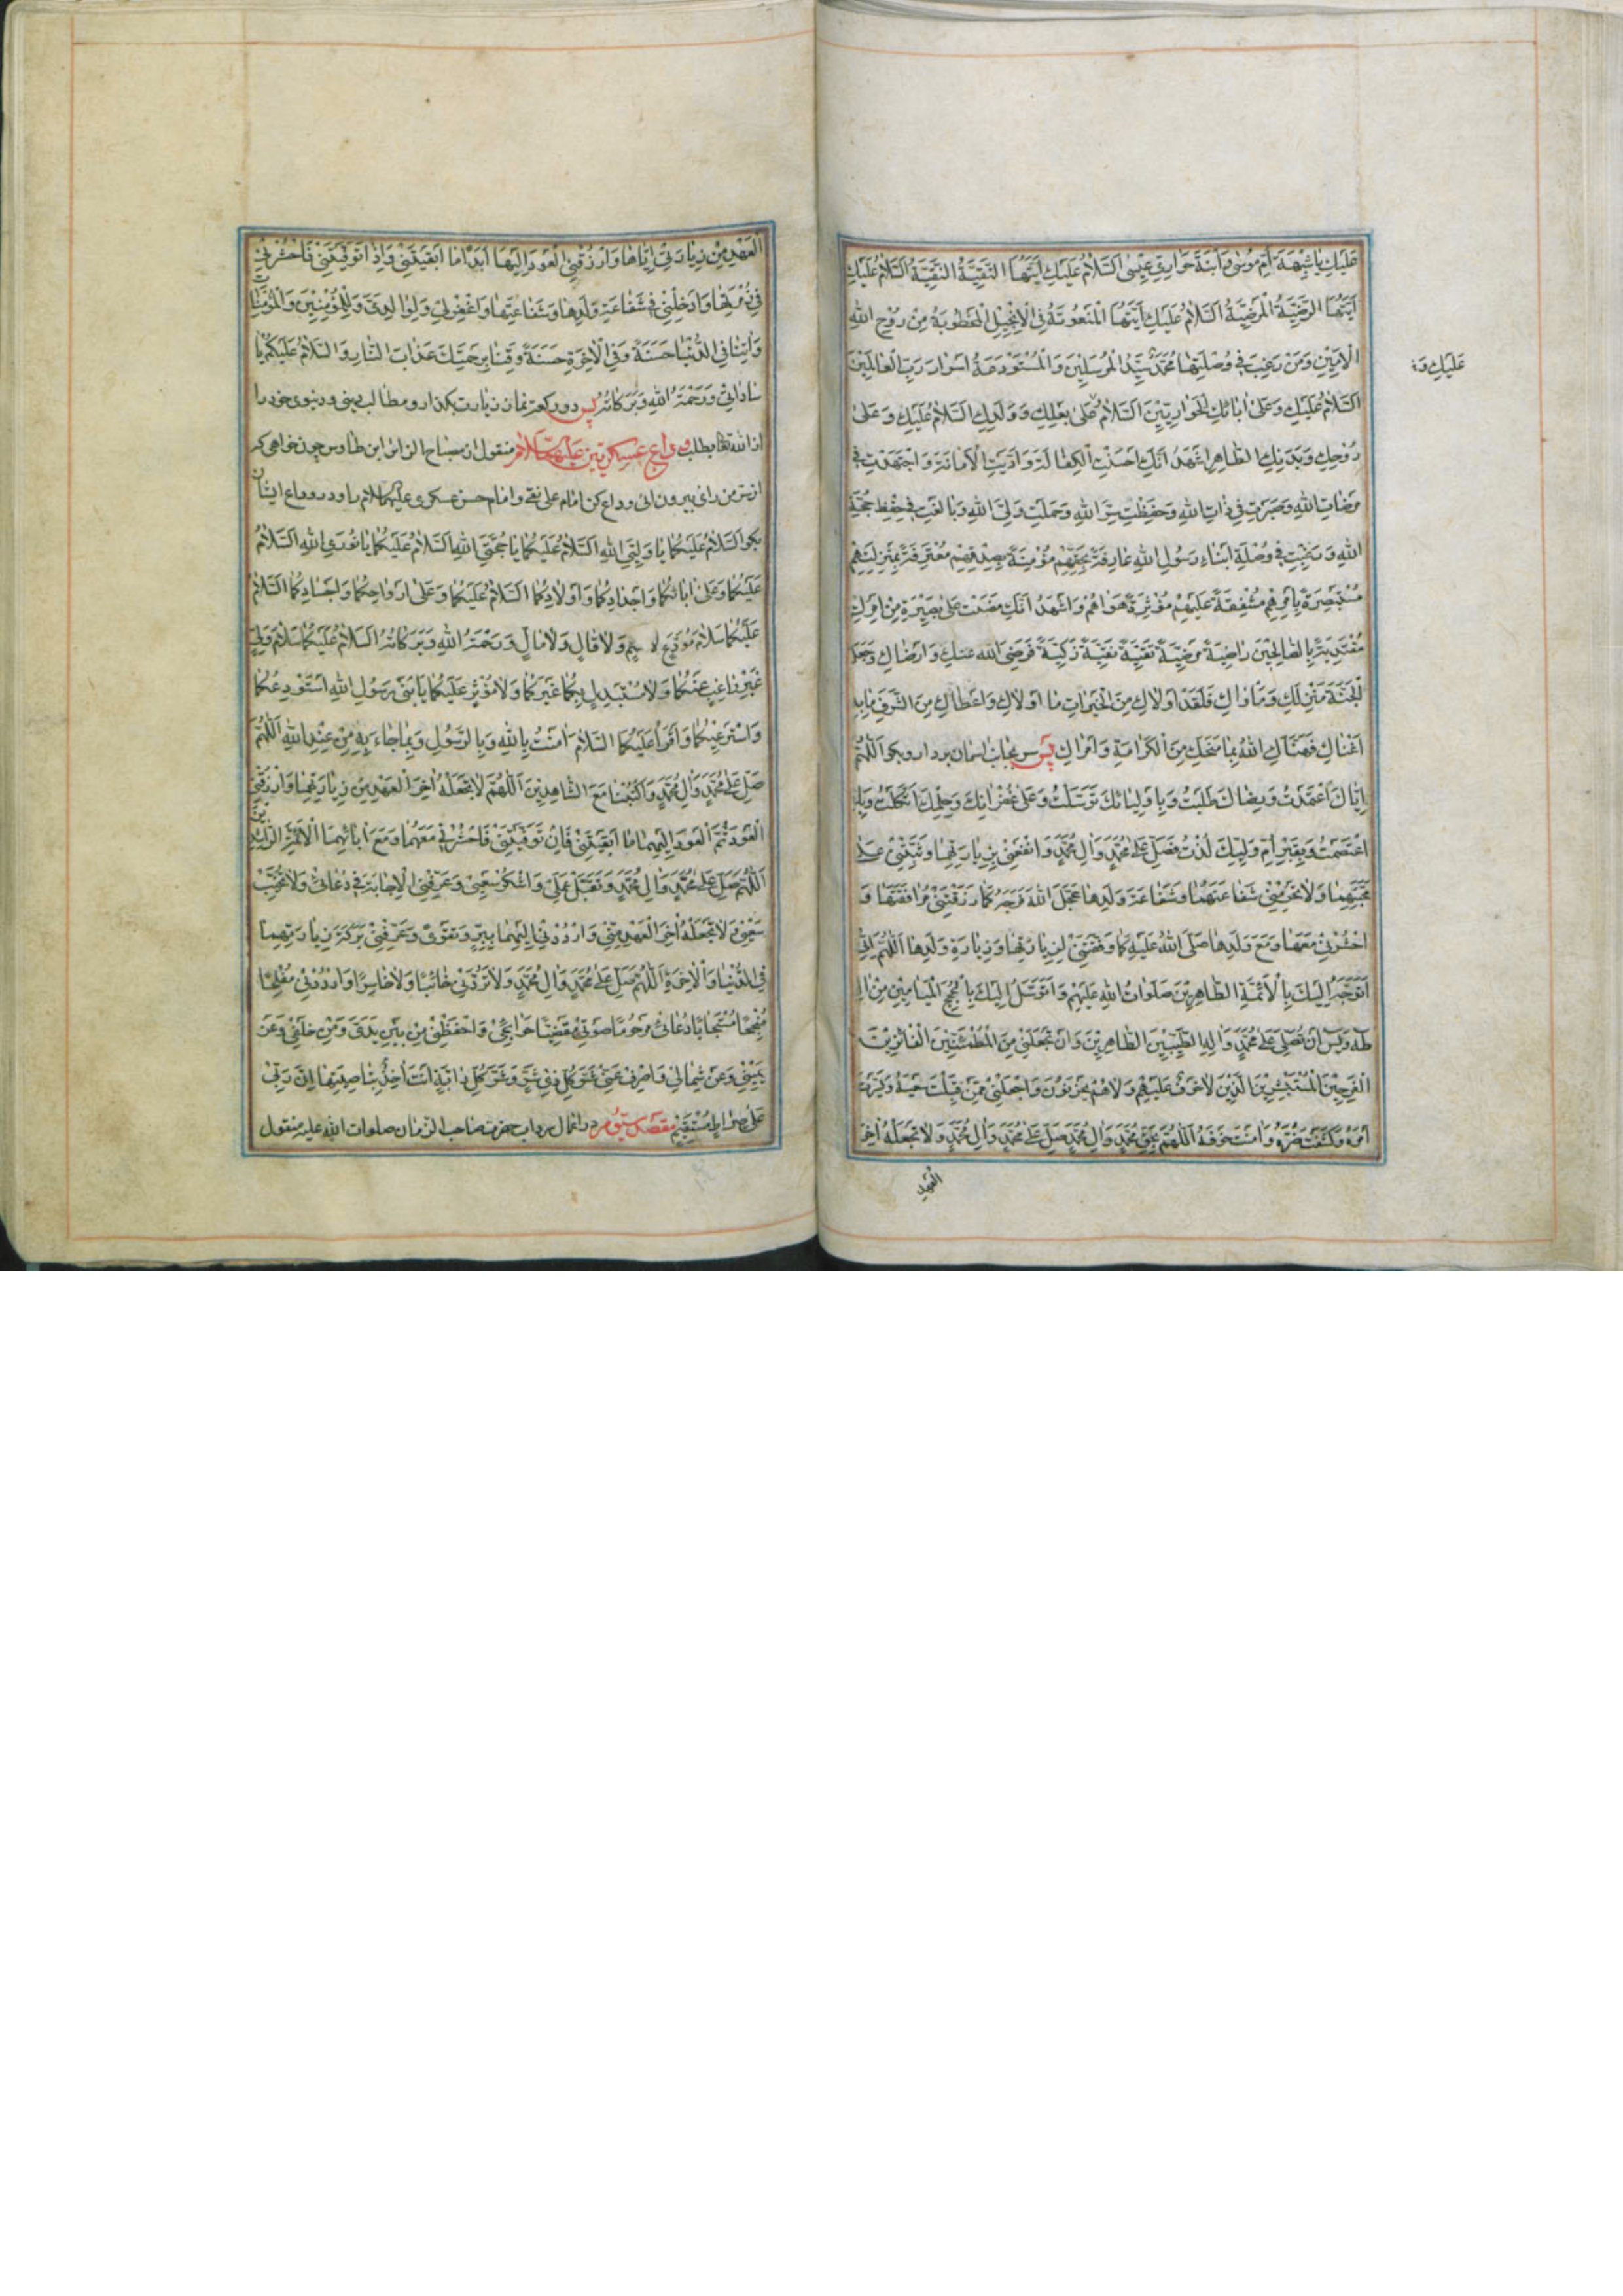 عَلَيْكِ يا شَبيهَةَ اُمِّ مُوسٰى وَابْنَةَ حَوارِيِّ عيسٰى اَلسَّلامُ عَلَيْكِ اَيَّتُهَا التَّقِيَّةُ النَّقِيَّةُ اَلسَّلامُ عَلَيْكِ
اَيَّتُهَا الرَّضِيَّةُ الْمَرْضِيَّةُ اَلسَّلامُ عَلَيْكِ اَيَّتُهَا الْمَنْعُوتَةُ فِى الْاِنْجيلِ الْمَخْطُوبَةُ مِنْ رُوحِ اللهِ
الْاَمينِ وَمَنْ رَغِبَ في وُصْلَتِها مُحَمَّدٌ سَيِّدُ الْمُرْسَلينَ وَالْمُسْتَوْدَعَةُ اَسْرارَ رَبِّ الْعالَمينَ
عَلَيْكِ وَ
اَلسَّلامُ عَلَيْكِ وَعَلٰى اٰبائِكِ الْحَوارِيّينَ اَلسَّلامُ عَلٰى بَعْلِكِ وَوَلَدِكِ اَلسَّلامُ عَلَيْكِ وَعَلٰى
رُوحِكِ وَبَدَنِكِ الطّاهِرِ اَشْهَدُ اَنَّكِ اَحْسَنْتِ الْكَفالَةَ وَاَدَّيْتِ الْاَمانَةَ وَاجْتَهَدْتِ في
مَرْضاتِ اللهِ وَصَبَرْتِ في ذاتِ اللهِ وَحَفِظْتِ سِرَّ اللهِ وَحَمَلْتِ وَلِيَّ اللهِ وَبالَغْتِ في حِفْظِ حُجَّةِ
اللهِ وَرَغِبْتِ في وُصْلَةِ اَبْناءِ رَسُولِ اللهِ عارِفَةً بِحَقِّهِمْ مُؤْمِنَةً بِصِدْقِهِمْ مُعْتَرِفَةً بِمَنْزِلَتِهِمْ
مُسْتَبْصِرَةً بِاَمْرِهِمْ مُشْفِقَةً عَلَيْهِمْ مُؤْثِرَةً هَواهُمْ وَاَشْهَدُ اَنَّكِ مَضَيْتِ عَلٰى بَصيرَةٍ مِنْ اَمْرِكِ
مُقْتَدِيَةً بِالصّالِحينَ راضِيَةً مَرْضِيَّةً تَقِيَّةً نَقِيَّةً زَكِيَّةً فَرَضِيَ اللهُ عَنْكِ وَاَرْضاكِ وَجَعَلَ
الْجَنَّةَ مَنْزِلَكِ وَمَأْواكِ فَلَقَدْ اَوْلاكِ مِنَ الْخَيْراتِ ما اَوْلاكِ وَاَعْطاكِ مِنَ الشَّرَفِ ما بِهِ
اَغْناكِ فَهَنَّاكِ اللهُ بِما مَنَحَكِ مِنَ الْكَرامَةِ وَاَمْراكِ پس سر بجانب اسمان بردار و بكو اَللّٰهُمَّ
اِيّاكَ اعْتَمَدْتُ وَرِضاكَ طَلَبْتُ وَبِاَوْلِيائِكَ تَوَسَّلْتُ وَعَلٰى غُفْرانِكَ وَحِلْمِكَ اتَّكَلْتُ وَبِكَ
اعْتَصَمْتُ وَبِقَبْرِ اُمِّ وَلِيِّكَ لُذْتُ فَصَلِّ عَلٰى مُحَمَّدٍ وَاٰلِ مُحَمَّدٍ وَانْفَعْني بِزِيارَتِها وَثَبِّتْني عَلٰى
مَحَبَّتِها وَلا تَحْرِمْني شَفاعَتَها وَشَفاعَةَ وَلَدِها عَجَّلَ اللهُ فَرَجَهُ كَما رَزَقْتَني مُرافَقَتَها وَ
احْشُرْني مَعَها وَمَعَ وَلَدِها صَلَّى اللهُ عَلَيْهِ كَما وَفَّقْتَني لِزِيارَتِها وَزِيارَةِ وَلَدِها اَللّٰهُمَّ اِنّي
اَتَوَجَّهُ اِلَيْكَ بِالْاَئِمَّةِ الطّاهِرينَ صَلَواتُ اللهِ عَلَيْهِمْ وَاَتَوَسَّلُ اِلَيْكَ بِالْحُجَجِ الْمَيامينِ مِنْ اٰلِ
طٰهٰ وَيٰس اَنْ تُصَلِّيَ عَلٰى مُحَمَّدٍ وَاٰلِهِ الطَّيِّبينَ الطّاهِرينَ وَاَنْ تَجْعَلَني مِنَ الْمُطْمَئِنّينَ الْفائِزينَ
الْفَرِحينَ الْمُسْتَبْشِرينَ الَّذينَ لا خَوْفٌ عَلَيْهِمْ وَلا هُمْ يَحْزَنُونَ وَاجْعَلْني مِمَّنْ قَبِلْتَ سَعْيَهُ وَيَسَّرْتَ
اَمْرَهُ وَكَشَفْتَ ضُرَّهُ وَاٰمَنْتَ خَوْفَهُ اَللّٰهُمَّ بِحَقِّ مُحَمَّدٍ وَاٰلِ مُحَمَّدٍ صَلِّ عَلٰى مُحَمَّدٍ وَاٰلِ مُحَمَّدٍ وَلا تَجْعَلْهُ اٰخِرَ
الْعَهْدِ
الْعَهْدِ مِنْ زِيارَتي اِيّاها وَارْزُقْنِي الْعَوْدَ اِلَيْها اَبَدًا ما اَبْقَيْتَني وَاِذا تَوَفَّيْتَني فَاحْشُرْني
في زُمْرَتِها وَاَدْخِلْني في شَفاعَةِ وَلَدِها وَشَفاعَتِها وَاغْفِرْ لي وَلِوالِدَيَّ وَلِلْمُؤْمِنينَ وَالْمُؤْمِناتِ
وَاٰتِنا فِي الدُّنْيا حَسَنَةً وَفِي الْاٰخِرَةِ حَسَنَةً وَقِنا بِرَحْمَتِكَ عَذابَ النّارِ وَالسَّلامُ عَلَيْكُمْ يا
ساداتي وَرَحْمَةُ اللهِ وَبَرَكاتُهُ پس دو ركعت نماز زيارت بكذار و مطالب دينى و دنيوى خود را
از الله تعا بطلب وداع عسكريين عليهما السلام منقول از مصباح الزائر ابن طاوس چون خواهى كه
از سر من راى بيرون ائى وداع كن امام على نقى و امام حسن عسكرى عليهما السلام را و در وداع ايشان
بكو اَلسَّلامُ عَلَيْكُما يا وَلِيَّيِ اللهِ اَلسَّلامُ عَلَيْكُما يا حُجَّتَيِ اللهِ اَلسَّلامُ عَلَيْكُما يا نُورَيِ اللهِ اَلسَّلامُ
عَلَيْكُما وَعَلٰى اٰبائِكُما وَاَجْدادِكُما وَاَوْلادِكُما اَلسَّلامُ عَلَيْكُما وَعَلٰى اَرْواحِكُما وَاَجْسادِكُما اَلسَّلامُ
عَلَيْكُما سَلامَ مُوَدِّعٍ لا سَئِمٍ وَلا قالٍ وَلا مالٍّ وَرَحْمَةُ اللهِ وَبَرَكاتُهُ اَلسَّلامُ عَلَيْكُما سَلامَ وَلِيٍّ
غَيْرِ راغِبٍ عَنْكُما وَلا مُسْتَبْدِلٍ بِكُما غَيْرَكُما وَلا مُؤْثِرٍ عَلَيْكُما يَا ابْنَيْ رَسُولِ اللهِ اَسْتَوْدِعُكُما
وَاَسْتَرْعيكُما وَاَقْرَأُ عَلَيْكُمَا السَّلامَ اٰمَنْتُ بِاللهِ وَبِالرَّسُولِ وَبِما جاءَ بِهِ مِنْ عِنْدِ اللهِ اَللّٰهُمَّ
صَلِّ عَلٰى مُحَمَّدٍ وَاٰلِ مُحَمَّدٍ وَاكْتُبْنا مَعَ الشّاهِدينَ اَللّٰهُمَّ لا تَجْعَلْهُ اٰخِرَ الْعَهْدِ مِنْ زِيارَتِهِما وَارْزُقْني
الْعَوْدَ ثُمَّ الْعَوْدَ اِلَيْهِما ما اَبْقَيْتَني فَاِنْ تَوَفَّيْتَني فَاحْشُرْني مَعَهُما وَمَعَ اٰبائِهِمَا الْاَئِمَّةِ الرّاشِدينَ
اَللّٰهُمَّ صَلِّ عَلٰى مُحَمَّدٍ وَاٰلِ مُحَمَّدٍ وَتَقَبَّلْ عَمَلي وَاشْكُرْ سَعْيي وَعَرِّفْنِي الْاِجابَةَ في دُعائي وَلا تُخَيِّبْ
سَعْيي وَلا تَجْعَلْهُ اٰخِرَ الْعَهْدِ مِنّي وَارْدُدْني اِلَيْهِما بِبِرٍّ وَتَقْوٰى وَعَرِّفْني بَرَكَةَ زِيارَتِهِما
فِي الدُّنْيا وَالْاٰخِرَةِ اَللّٰهُمَّ صَلِّ عَلٰى مُحَمَّدٍ وَاٰلِ مُحَمَّدٍ وَلا تَرُدَّني خائِبًا وَلا خاسِرًا وَارْدُدْني مُفْلِحًا
مُنْجِحًا مُسْتَجابًا دُعائي مَرْحُومًا صَوْتي مَقْضِيًّا حَوائِجي وَاحْفَظْني مِنْ بَيْنِ يَدَيَّ وَمِنْ خَلْفي وَعَنْ
يَميني وَعَنْ شِمالي وَاصْرِفْ عَنّي شَرَّ كُلِّ ذي شَرٍّ وَشَرَّ كُلِّ دابَّةٍ اَنْتَ اٰخِذٌ بِناصِيَتِها اِنَّ رَبّي
عَلٰى صِراطٍ مُسْتَقيمٍ مقصد سيوم در اعمال سرداب حضرت صاحب الزمان صلوات الله عليه منقول